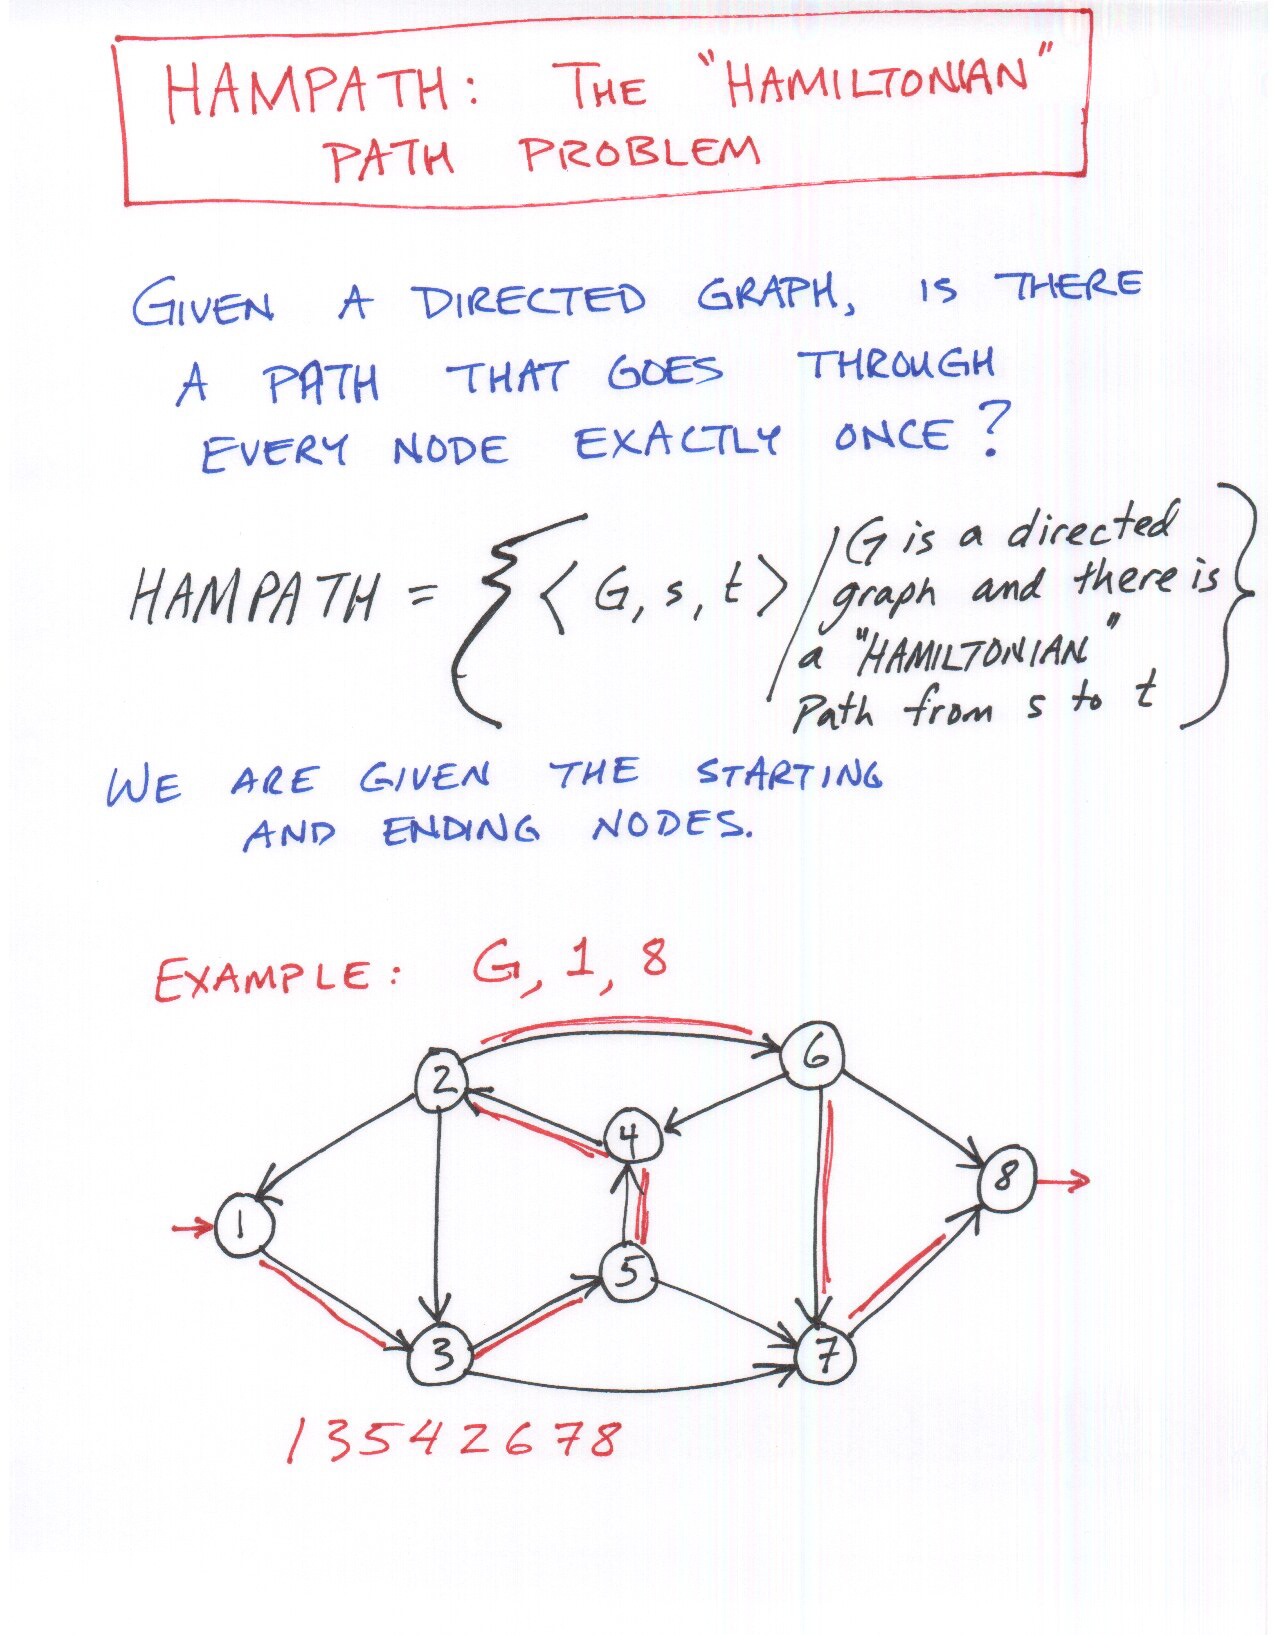 HAMPATH: THE "HAMILTONIAN"
PATH PROBLEM
GIVEN A DIRECTED GRAPH, IS THERE
A PATH THAT GOES THROUGH
EVERY NODE EXACTLY ONCE?
HAMPATH = { < G, s, t > / G is a directed
graph and there is
a "HAMILTONIAN"
Path from s to t }
WE ARE GIVEN THE STARTING
AND ENDING NODES.
EXAMPLE: G, 1, 8
6
2
4
8
1
5
3
7
1 3 5 4 2 6 7 8